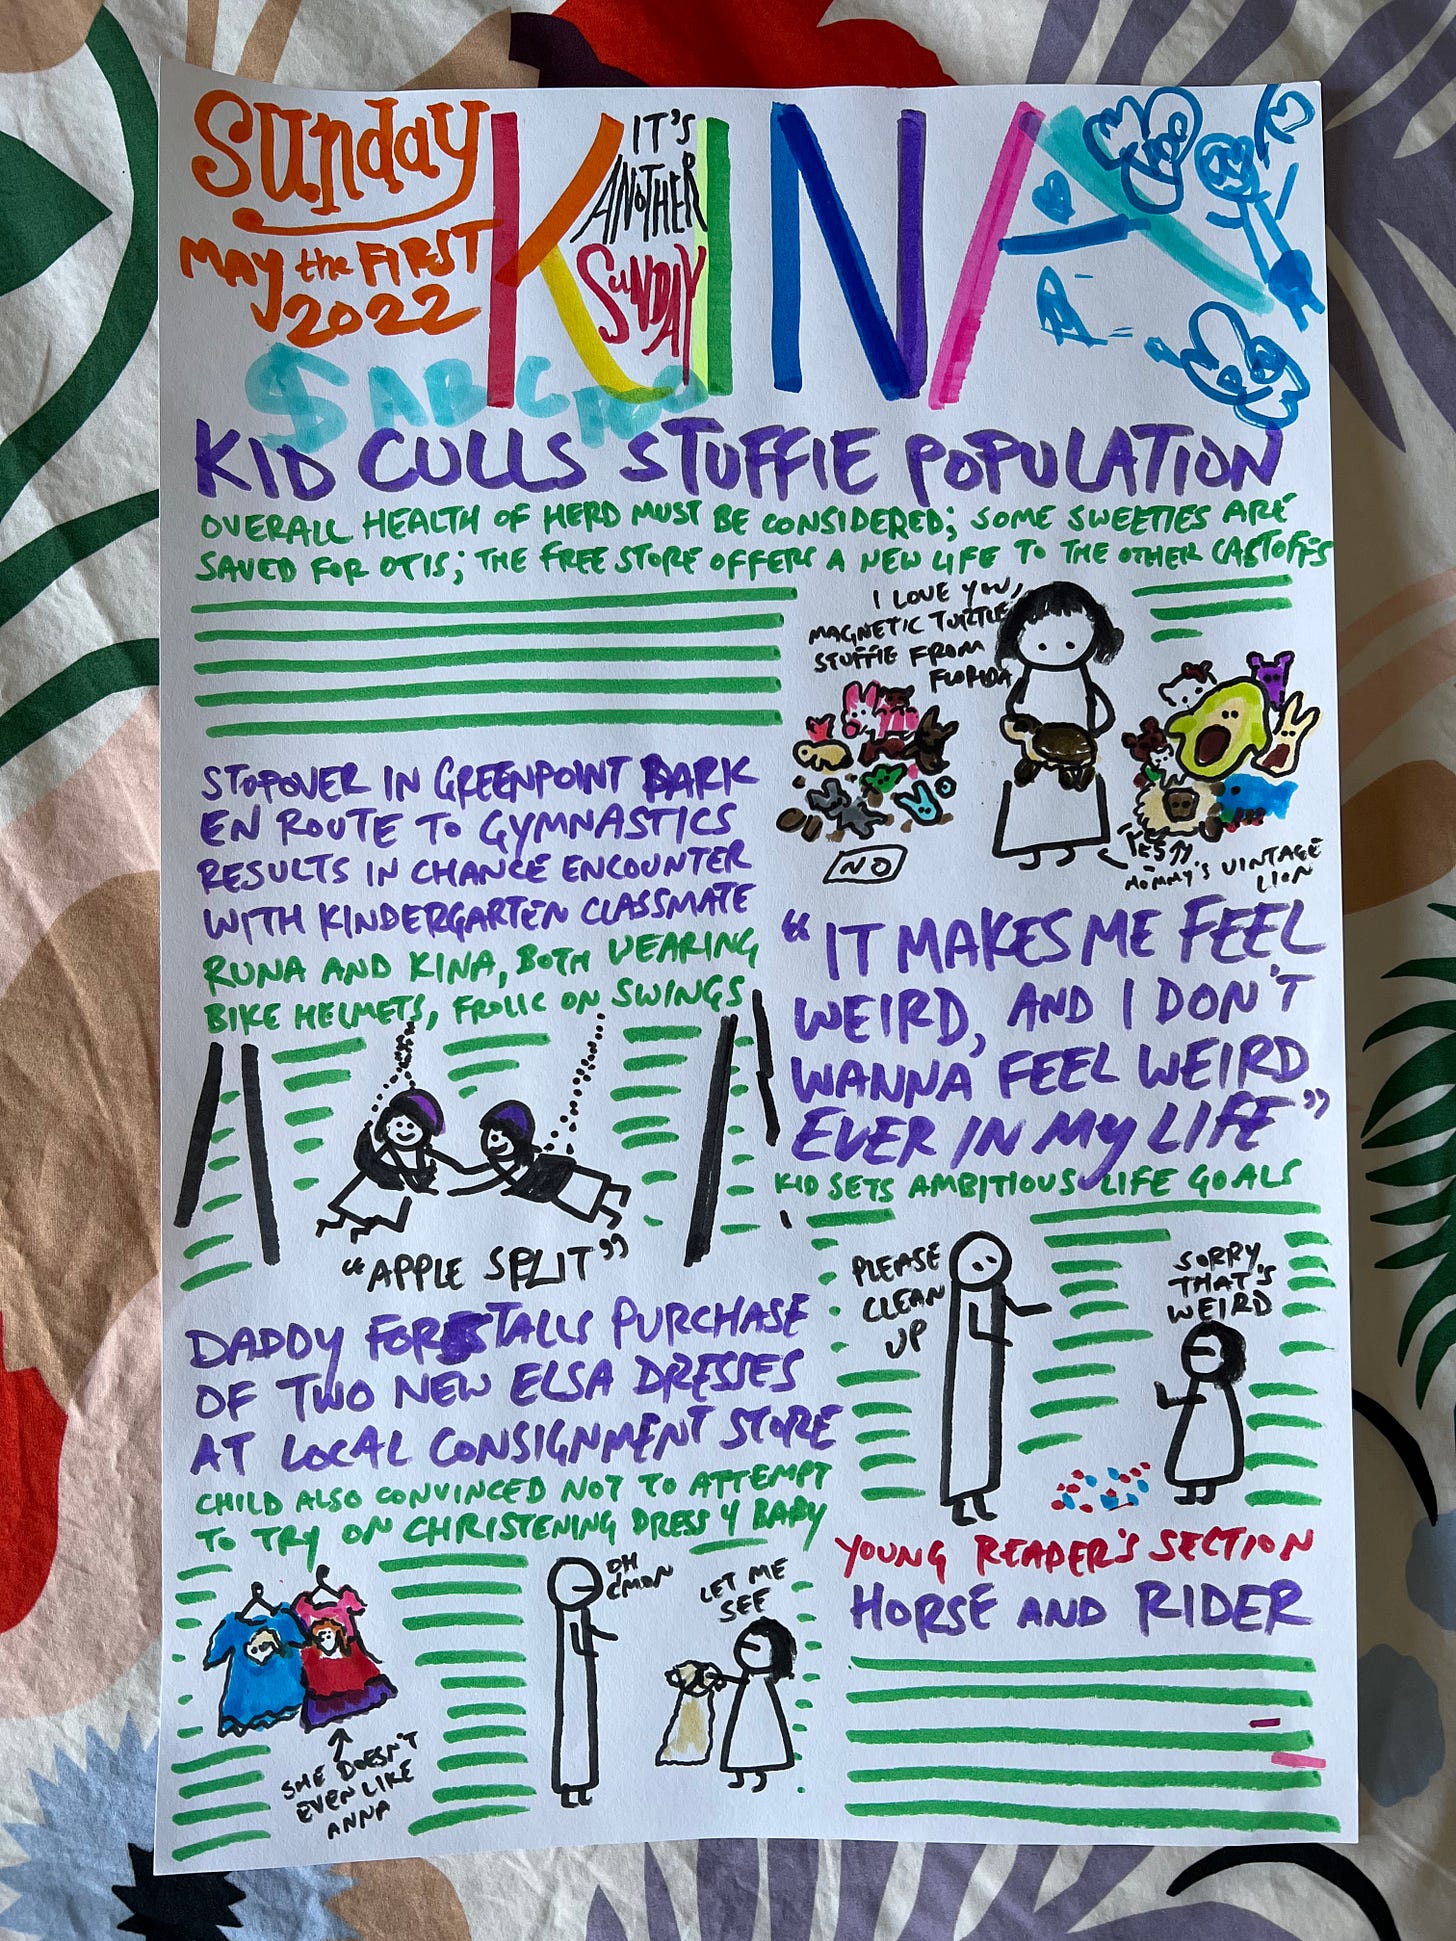 Sunday
MAY the FIRST
2022
KINA
IT'S
ANOTHER
SUNDAY
ABC
KID CULLS STUFFIE POPULATION
OVERALL HEALTH OF HERD MUST BE CONSIDERED; SOME SWEETIES ARE
SAVED FOR OTIS; THE FREE STORE OFFERS A NEW LIFE TO THE OTHER CASTOFFS
I LOVE YOU,
MAGNETIC TURTLE
STUFFIE FROM
FLORIDA
NO
YES!!
MOMMY'S VINTAGE
LION
STOPOVER IN GREENPOINT PARK
EN ROUTE TO GYMNASTICS
RESULTS IN CHANCE ENCOUNTER
WITH KINDERGARTEN CLASSMATE
RUNA AND KINA, BOTH WEARING
BIKE HELMETS, FROLIC ON SWINGS
"APPLE SPLIT"
"IT MAKES ME FEEL
WEIRD, AND I DON'T
WANNA FEEL WEIRD
EVER IN MY LIFE"
KID SETS AMBITIOUS LIFE GOALS
PLEASE
CLEAN
UP
SORRY,
THAT'S
WEIRD
DADDY FORESTALLS PURCHASE
OF TWO NEW ELSA DRESSES
AT LOCAL CONSIGNMENT STORE
CHILD ALSO CONVINCED NOT TO ATTEMPT
TO TRY ON CHRISTENING DRESS 4 BABY
SHE DOESN'T
EVEN LIKE
ANNA
OH
C'MON
LET ME
SEE
YOUNG READER'S SECTION
HORSE AND RIDER